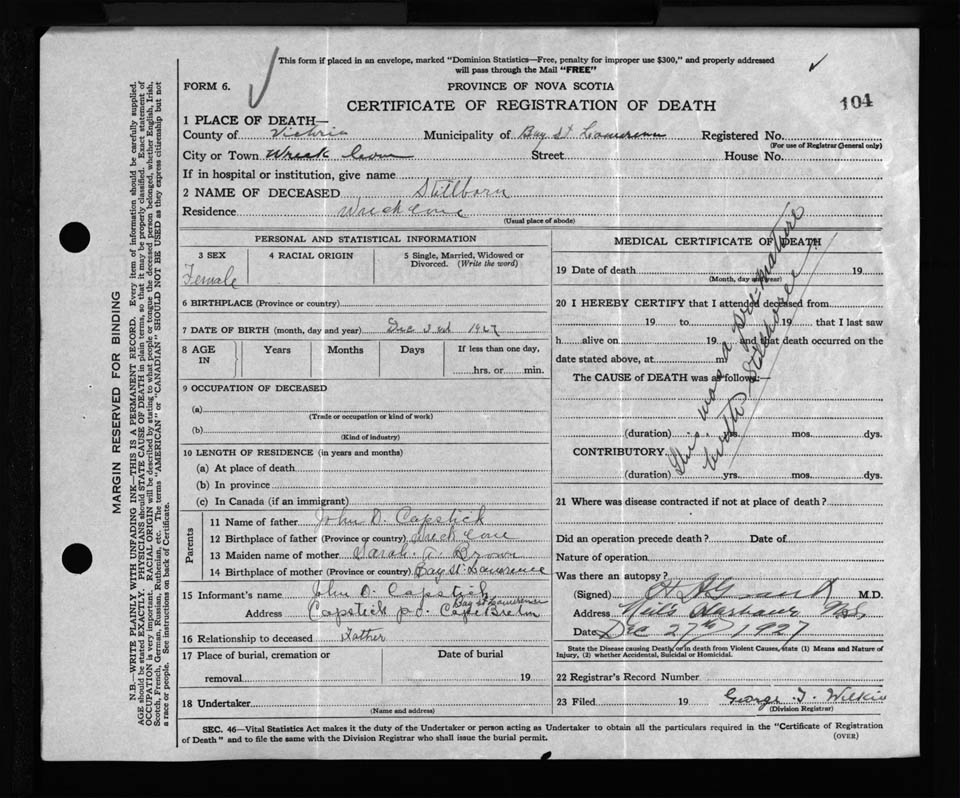 This form if placed in an envelope, marked "Dominion Statistics—Free, penalty for improper use $300," and properly addressed
will pass through the Mail "FREE"
FORM 6.
PROVINCE OF NOVA SCOTIA
CERTIFICATE OF REGISTRATION OF DEATH
104
1 PLACE OF DEATH—
County of Victoria Municipality of Bay St. Lawrence Registered No.
(For use of Registrar General only)
City or Town Wreck Cove Street House No.
If in hospital or institution, give name
2 NAME OF DECEASED Stillborn
Residence Wreck Cove
(Usual place of abode)
PERSONAL AND STATISTICAL INFORMATION
3 SEX 4 RACIAL ORIGIN 5 Single, Married, Widowed or Divorced. (Write the word)
Female
6 BIRTHPLACE (Province or country)
7 DATE OF BIRTH (month, day and year) Dec 3rd 1927
8 AGE IN Years Months Days If less than one day,
hrs. or min.
9 OCCUPATION OF DECEASED
(a)
(Trade or occupation or kind of work)
(b)
(Kind of industry)
10 LENGTH OF RESIDENCE (in years and months)
(a) At place of death
(b) In province
(c) In Canada (if an immigrant)
Parents
11 Name of father John D. Capstick
12 Birthplace of father (Province or country) Wreck Cove
13 Maiden name of mother Sarah A. Brown
14 Birthplace of mother (Province or country) Bay St. Lawrence
15 Informant's name John D. Capstick
Bay St Lawrence
Address Capstick p.o. Cape Breton
16 Relationship to deceased Father
17 Place of burial, cremation or Date of burial
removal 19
18 Undertaker
(Name and address)
MEDICAL CERTIFICATE OF DEATH
19 Date of death 19
(Month, day and year)
20 I HEREBY CERTIFY that I attended deceased from
19 to 19 that I last saw
h alive on 19 and that death occurred on the
date stated above, at m.
The CAUSE of DEATH was as follows:—
This was a premature
birth Stillborn
(duration) yrs. mos. dys.
CONTRIBUTORY
(duration) yrs. mos. dys.
21 Where was disease contracted if not at place of death?
Did an operation precede death? Date of
Nature of operation
Was there an autopsy?
(Signed) M.D.
Address Neil's Harbour N.S.
Date Dec 27th 1927
State the Disease causing Death, or in death from Violent Causes, state (1) Means and Nature of
Injury, (2) whether Accidental, Suicidal or Homicidal.
22 Registrar's Record Number
23 Filed 19 George T. Wilkie
(Division Registrar)
SEC. 46—Vital Statistics Act makes it the duty of the Undertaker or person acting as Undertaker to obtain all the particulars required in the "Certificate of Registration
of Death" and to file the same with the Division Registrar who shall issue the burial permit.
(OVER)
MARGIN RESERVED FOR BINDING
N.B.—WRITE PLAINLY WITH UNFADING INK—THIS IS A PERMANENT RECORD. Every item of information should be carefully supplied.
AGE should be stated EXACTLY. PHYSICIANS should STATE CAUSE OF DEATH in plain terms, so that it may be properly classified. Exact statement of
OCCUPATION is very important. RACIAL ORIGIN will be described by stating to what people or tongue the deceased person belonged, whether English, Irish,
Scotch, French, German, Russian, Ruthenian, etc. The terms "AMERICAN" or "CANADIAN" SHOULD NOT BE USED as they express citizenship but not
a race or people. See instructions on back of Certificate.